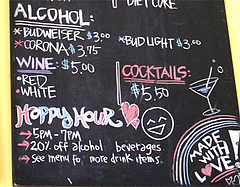 DIET COKE
ALCOHOL:
*BUDWEISER $3.00
*CORONA $3.75
*BUD LIGHT $3.00
WINE: $5.00
•RED
•WHITE
COCKTAILS:
$5.50
HAPPY HOUR
→5PM-7PM
→20% off alcohol beverages.
→see menu for more drink items.
MADE
WITH
LOVE